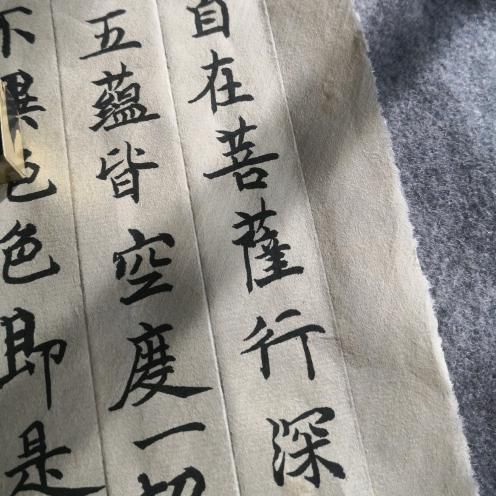 自在菩薩行深
五蘊皆空度一切
不異色色即是